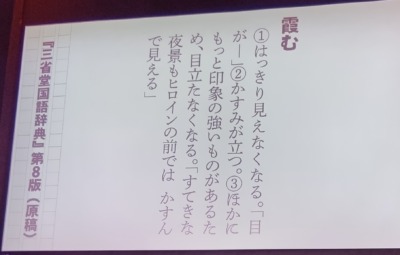 霞む
①はっきり見えなくなる。「目
が―」②かすみが立つ。③ほかに
もっと印象の強いものがあるた
め、目立たなくなる。「すてきな
夜景もヒロインの前では かすん
で見える」
『三省堂国語辞典』第8版(原稿)